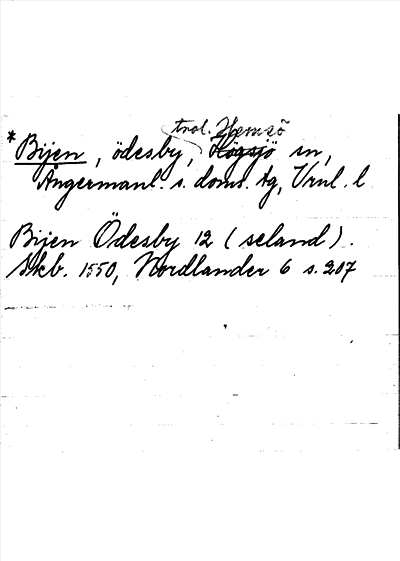 trol. Hemsö
*Bijen, ödesby, Högsjö sn,
Ångermanl. s. doms. tg, Vrnl. l
Bijen Ödesby 12 (seland).
Skb. 1550, Nordlander 6 s. 207